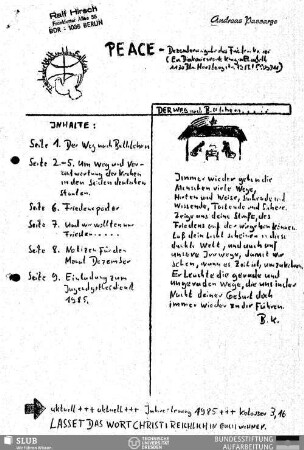 Ralf Hirsch
Frankfurter Allee
DDR - 1035 BERLIN
Andreas Passarge
PEACE - Dezemberausgabe des Friedenskreises
INHALTE:
Seite 1. Der Weg nach Bethlehem
Seite 2-5. Um Weg und Ver-
antwortung der Kirchen
in den beiden deutschen
Staaten.
Seite 6. Friedensposter
Seite 7. Und wir wollten nur
Frieden
Seite 8. Notizen für den
Monat Dezember
Seite 9. Einladung zum
Jugendgottesdienst
1985.
DER WEG nach Bethlehem
Immer wieder gehen die
Menschen viele Wege,
Hirten und Weise, Suchende und
Wissende, Tastende und Sichere.
Zeige uns deine Straße, des
Friedens auf der wir gehen können.
Laß dein Licht scheinen in diese
dunkle Welt, und auch auf
unsere Irrwege, damit wir
sehen, wann es Zeit ist, umzukehren.
Erleuchte die geraden und
ungeraden Wege, die uns in der
Nacht deiner Geburt doch
immer wieder zu dir führen.
B.K.
aktuell +++ aktuell +++ Jahreslosung 1985 +++ Kolosser 3,16
LASSET DAS WORT CHRISTI REICHLICH IN EUCH WOHNEN.
SLUB
Wir führen Wissen.
TECHNISCHE
UNIVERSITÄT
DRESDEN
BUNDESSTIFTUNG
AUFARBEITUNG